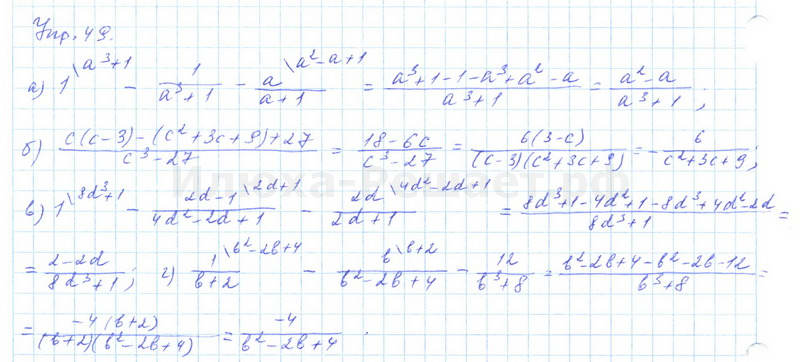 Упр. 49.
а) 1^{\a³+1} − 1/(a³+1) − a^{\a²−a+1}/(a+1) = (a³+1−1−a³+a²−a)/(a³+1) = (a²−a)/(a³+1);
б) (c(c−3)−(c²+3c+9)+27)/(c³−27) = (18−6c)/(c³−27) = 6(3−c)/((c−3)(c²+3c+9)) = −6/(c²+3c+9);
в) 1^{\8d³+1} − (2d−1)^{\2d+1}/(4d²−2d+1) − 2d^{\4d²−2d+1}/(2d+1) = (8d³+1−4d²+1−8d³+4d²−2d)/(8d³+1) =
= (2−2d)/(8d³+1); г) 1^{\b²−2b+4}/(b+2) − b^{\b+2}/(b²−2b+4) − 12/(b³+8) = (b²−2b+4−b²−2b−12)/(b³+8) =
= −4(b+2)/((b+2)(b²−2b+4)) = −4/(b²−2b+4).